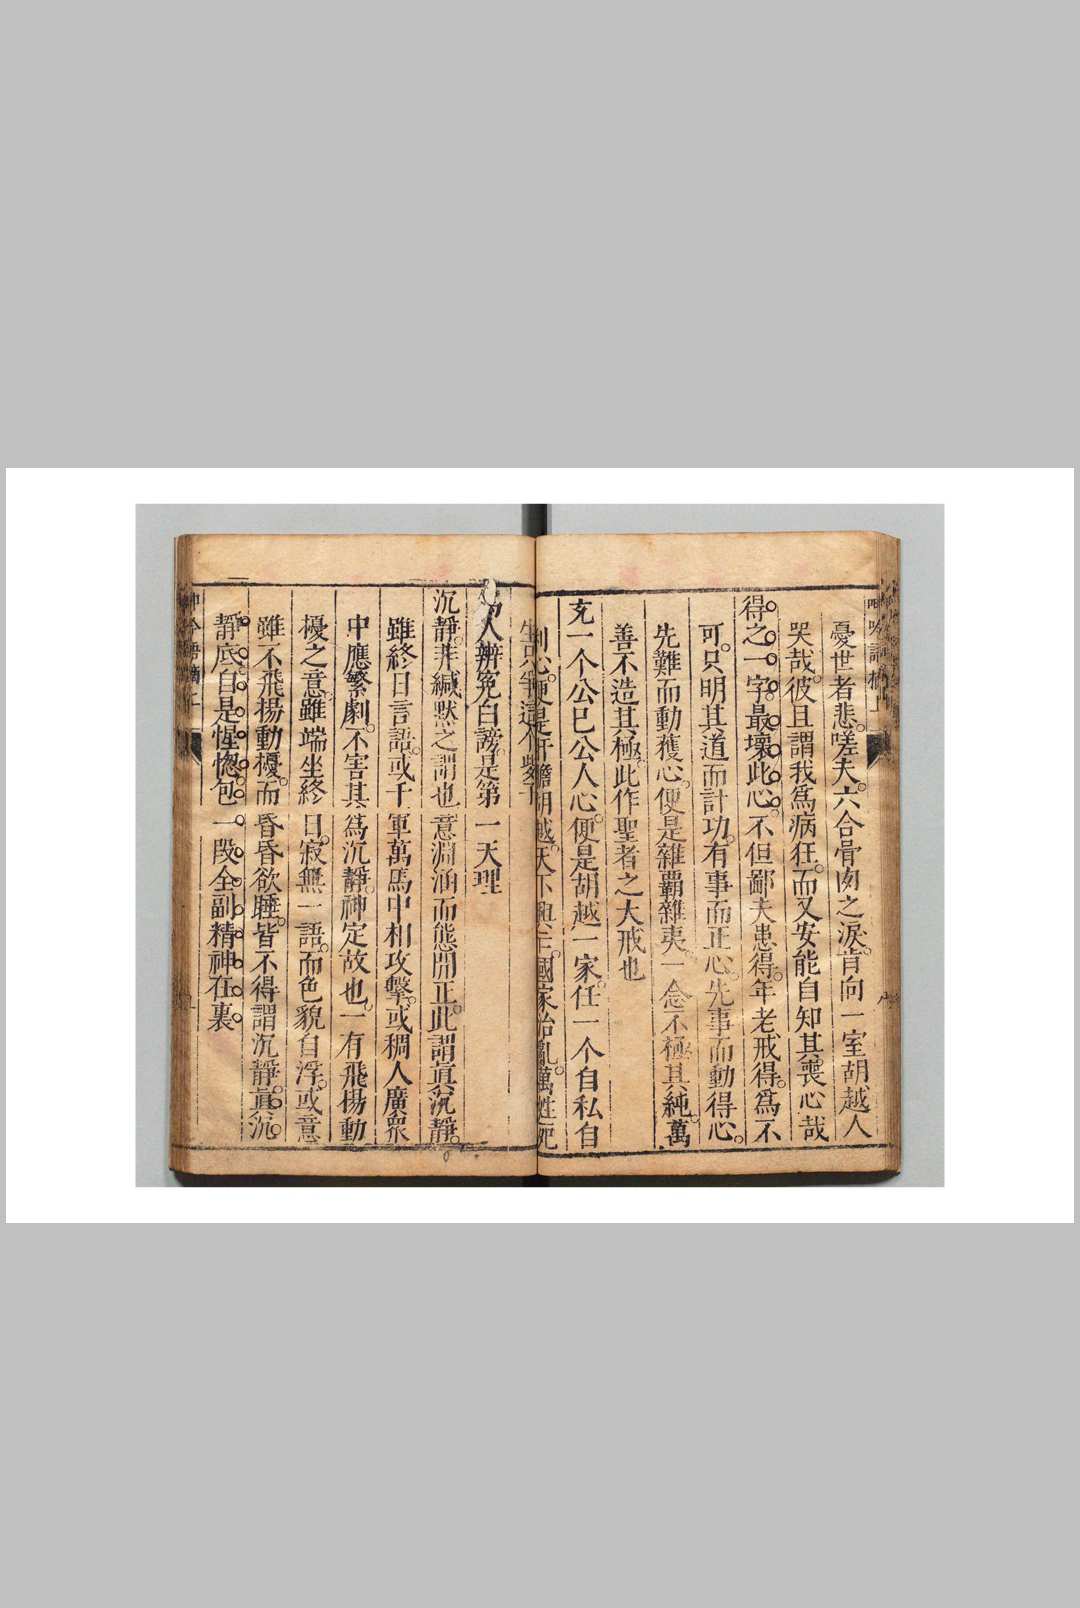 憂世者悲嗟夫六合骨肉之淚肯向一室胡越人
哭哉彼且謂我為病狂而又安能自知其喪心哉
得之一字最壞此心不但鄙夫患得年老戒得為不
可只明其道而計功有事而正心先事而動得心
先難而動獲心便是雜霸雜夷一念不極其純萬
善不造其極此作聖者之大戒也
充一个公己公人心便是胡越一家任一个自私自
利心便是肝膽胡越天下興亡國家治亂萬姓死
生只爭這个些子
人辨冤白謗是第一天理
沉靜非緘默之謂也意淵涵而態閒正此謂真沉靜
雖終日言語或千軍萬馬中相攻擊或稠人廣衆
中應繁劇不害其為沉靜神定故也一有飛揚動
擾之意雖端坐終日寂無一語而色貌自浮或意
雖不飛揚動擾而昏昏欲睡皆不得謂沉靜真沉
靜底自是惺惚包一段全副精神在裏